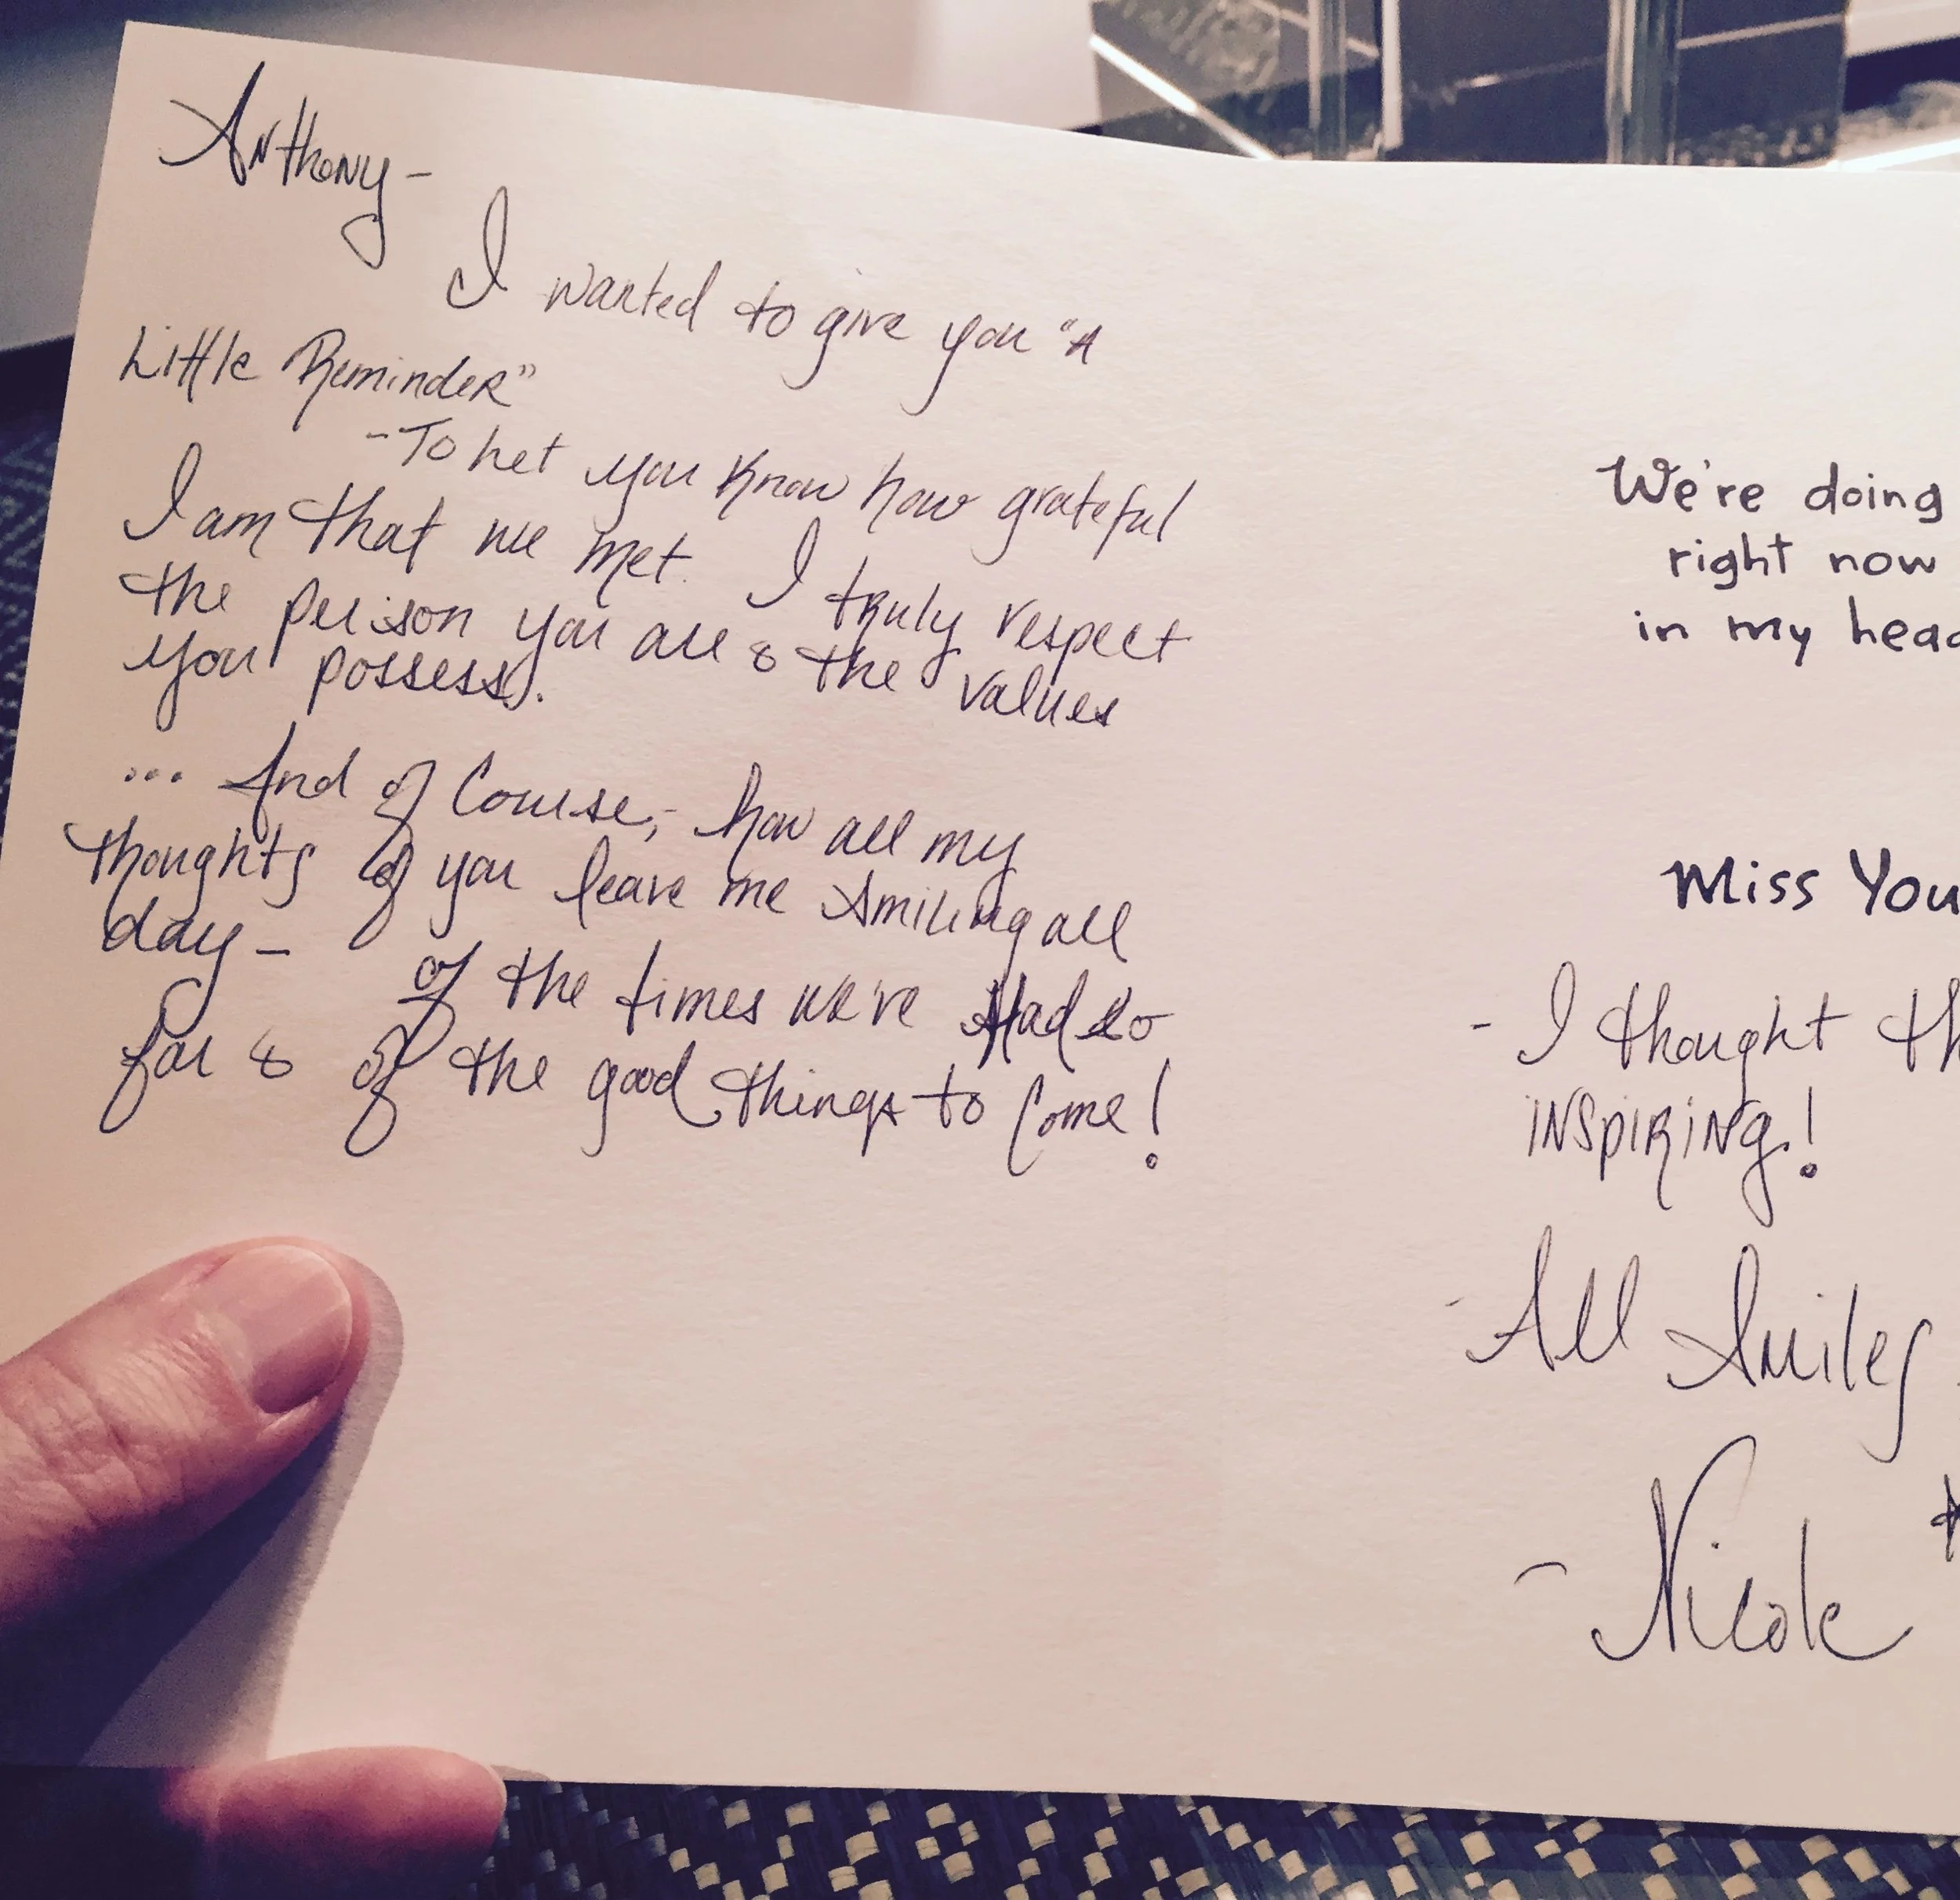 Anthony-
I wanted to give you "A
Little Reminder"
- To let you know how grateful
I am that we met. I truly respect
the person you are & the values
you possess.
... And of Course, - how all my
thoughts of you leave me smiling all
day -
of the times we've Had so
far & of the good things to Come!
We're doing
right now
in my head
Miss You
- I thought th
INSPIRING!
- All Smiles
- Nicole